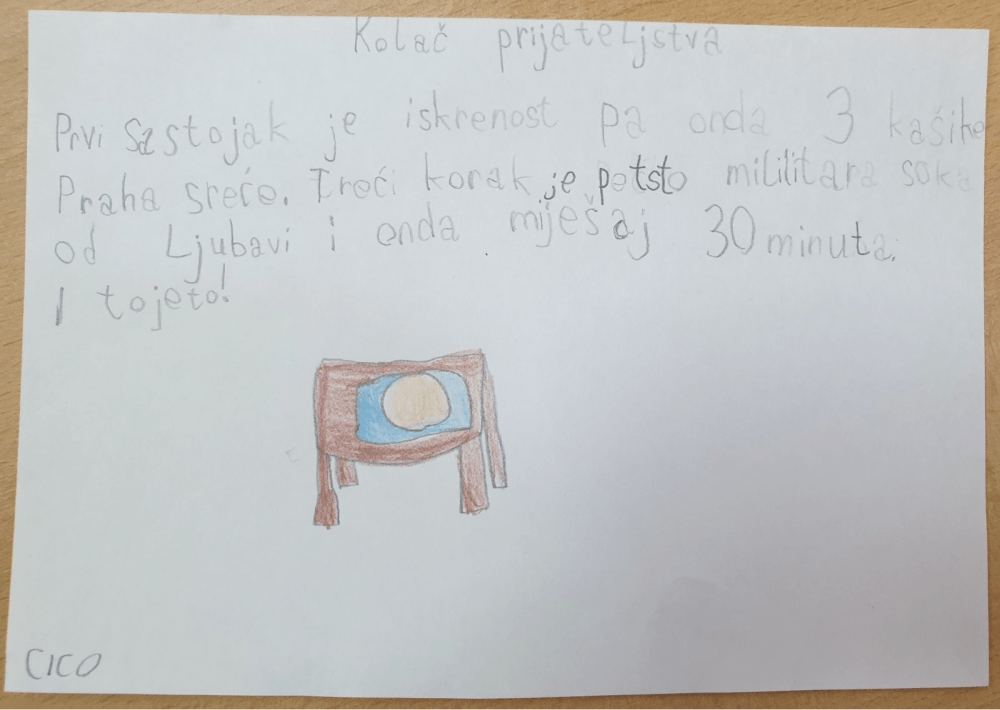 Kolač prijateljstva
Prvi sastojak je iskrenost pa onda 3 kašike
Praha sreće. Treći korak je petsto mililitara soka
od Ljubavi i onda miješaj 30 minuta.
I tojeto!
CICO